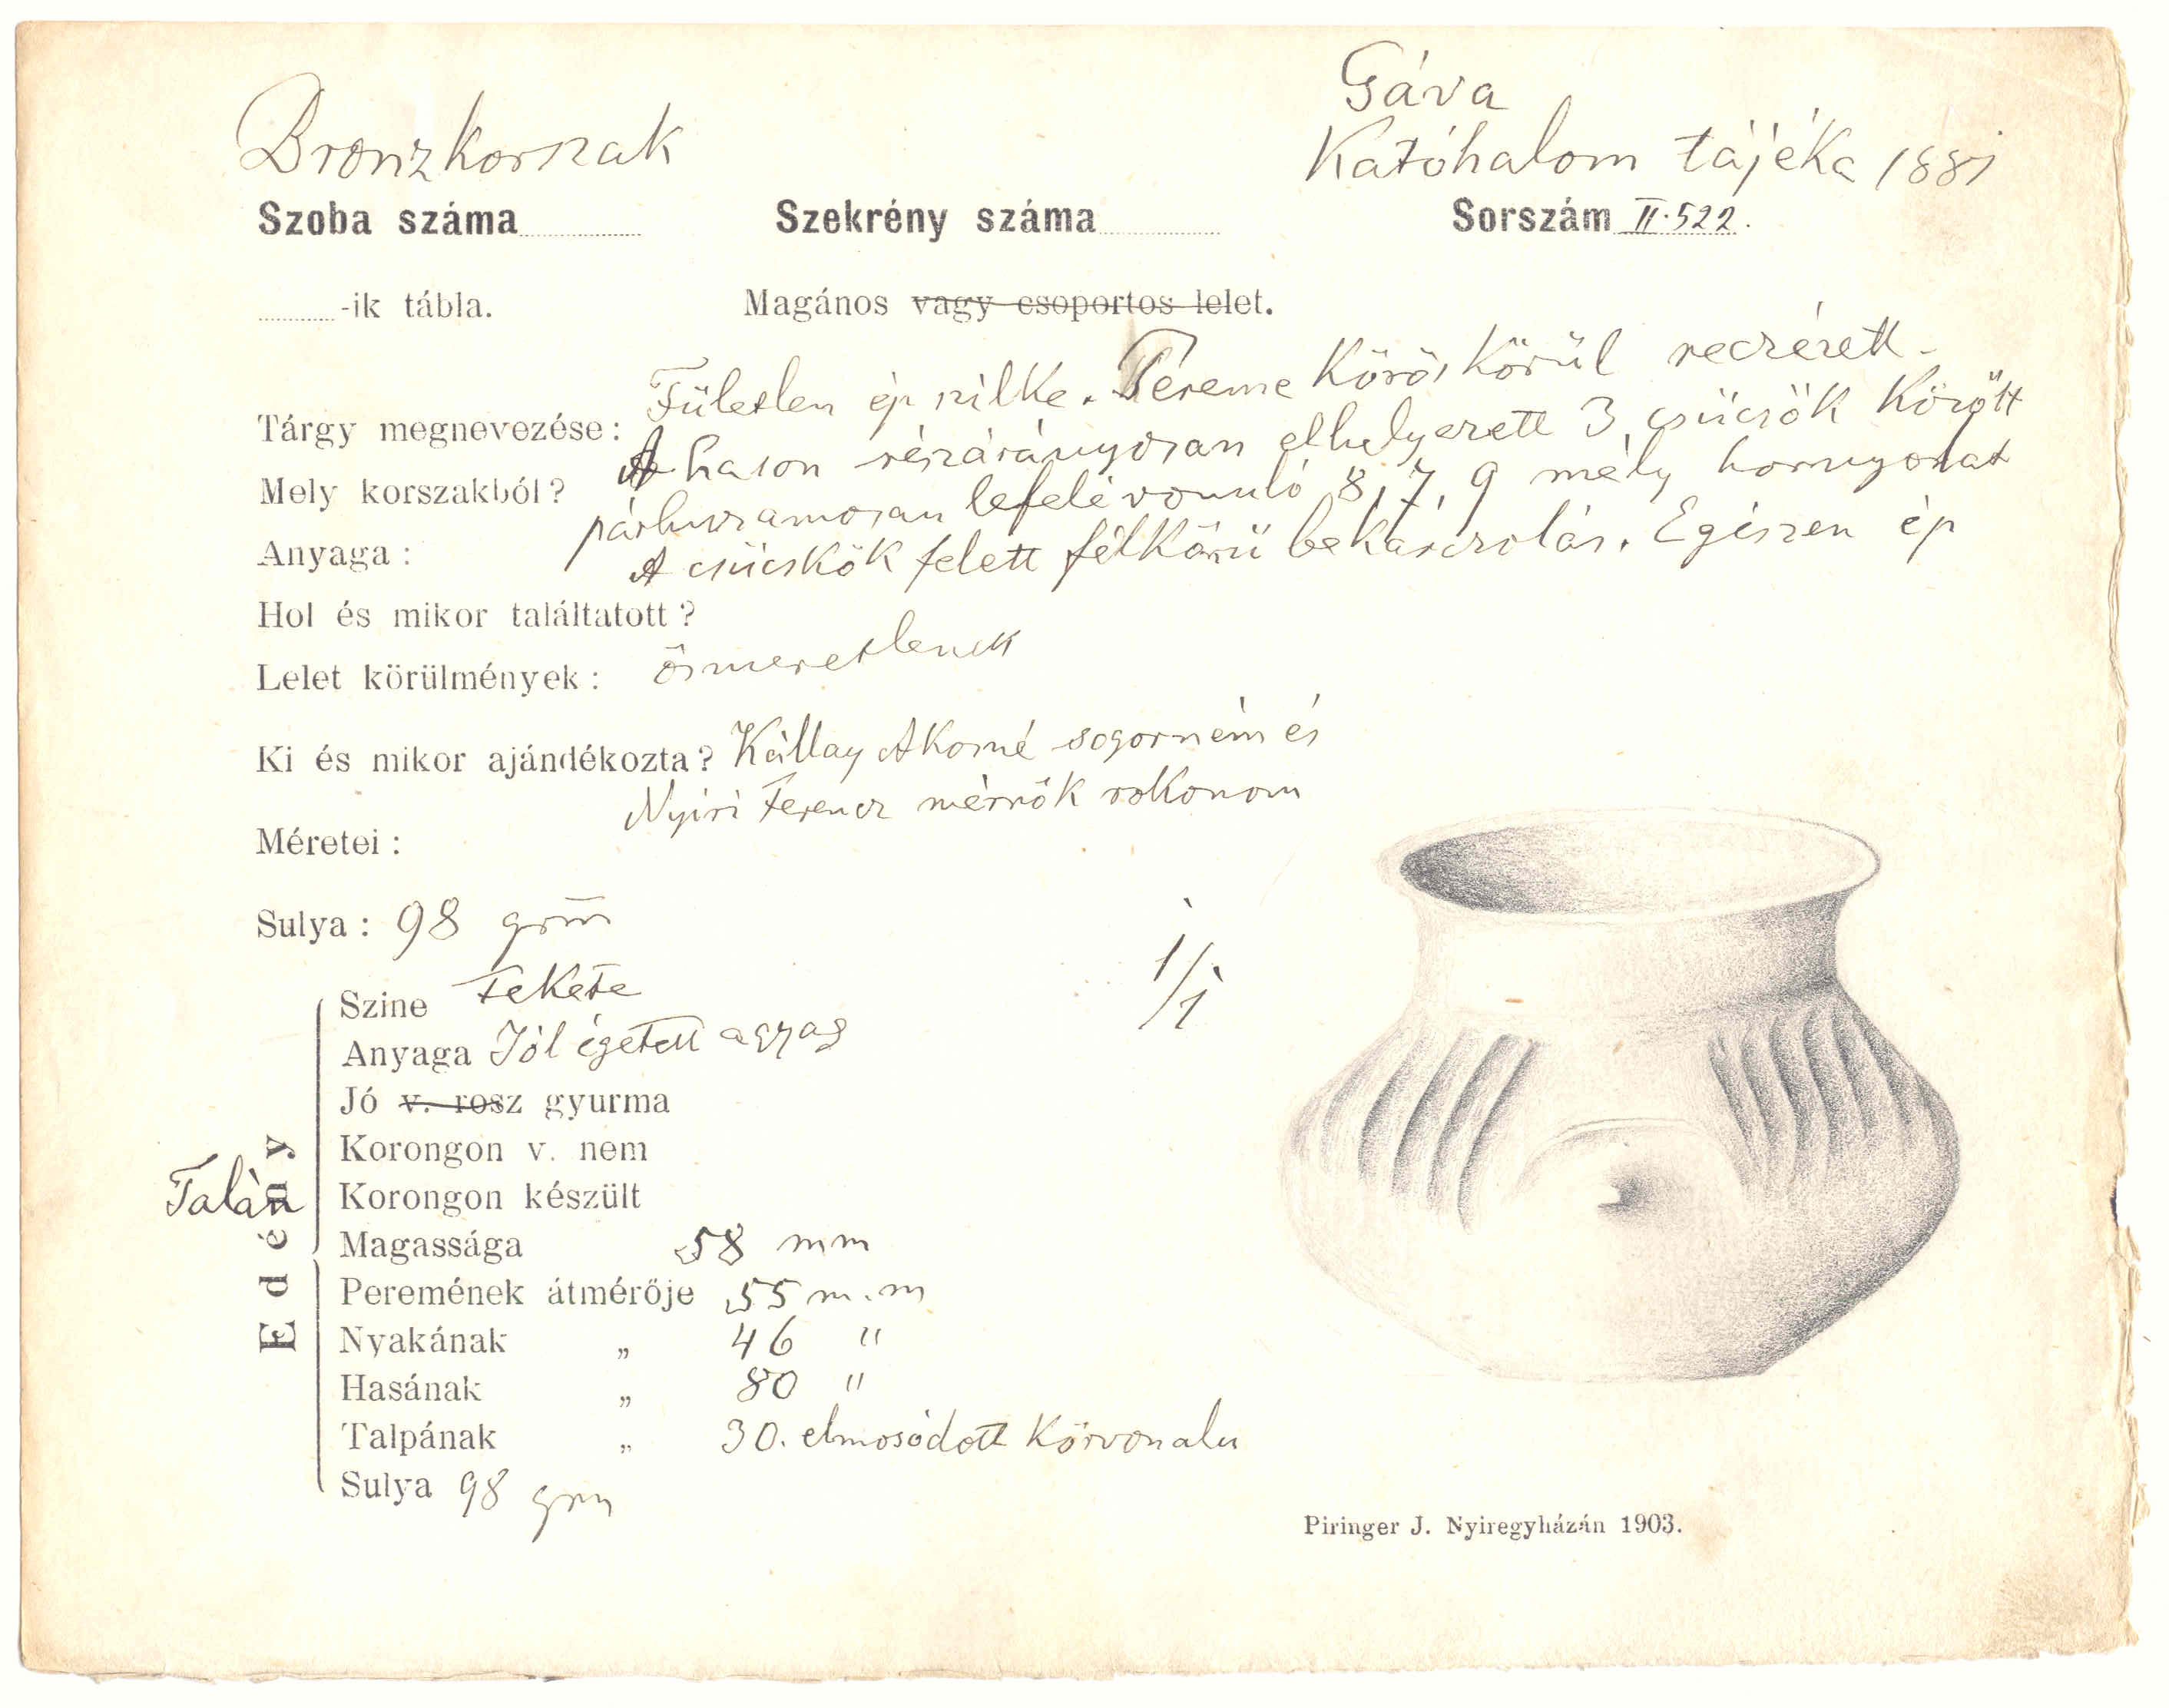 Gáva
Bronzkorszak
Katóhalom tájéka 1881
Szoba száma
Szekrény száma
Sorszám II.522.
-ik tábla.
Magános vagy csoportos lelet.
Fületlen ép szilke. Pereme köröskörül reczézett.
Tárgy megnevezése:
A hason részarányosan elhelyezett 3 csücsök között
Mely korszakból?
párhuzamosan lefelé vonuló 8, 7, 9 mély hornyozat
Anyaga:
A csücskök felett félkörű bekarczolás. Egészen ép
Hol és mikor találtatott?
Lelet körülmények: ösmeretlenek
Ki és mikor ajándékozta? Kállay Ákosné sógorném és
Nyiri Ferencz mérnök rokonom
Méretei:
Sulya: 98 grm
1/1
Szine Fekete
Anyaga Jól égetett agyag
Jó v. rosz gyurma
Korongon v. nem
Talán
Korongon készült
Edény
Magassága 58 mm
Peremének átmérője 55 m.m
Nyakának „ 46 "
Hasának „ 80 "
Talpának „ 30. elmosódott körvonalu
Sulya 98 grm
Piringer J. Nyiregyházán 1903.